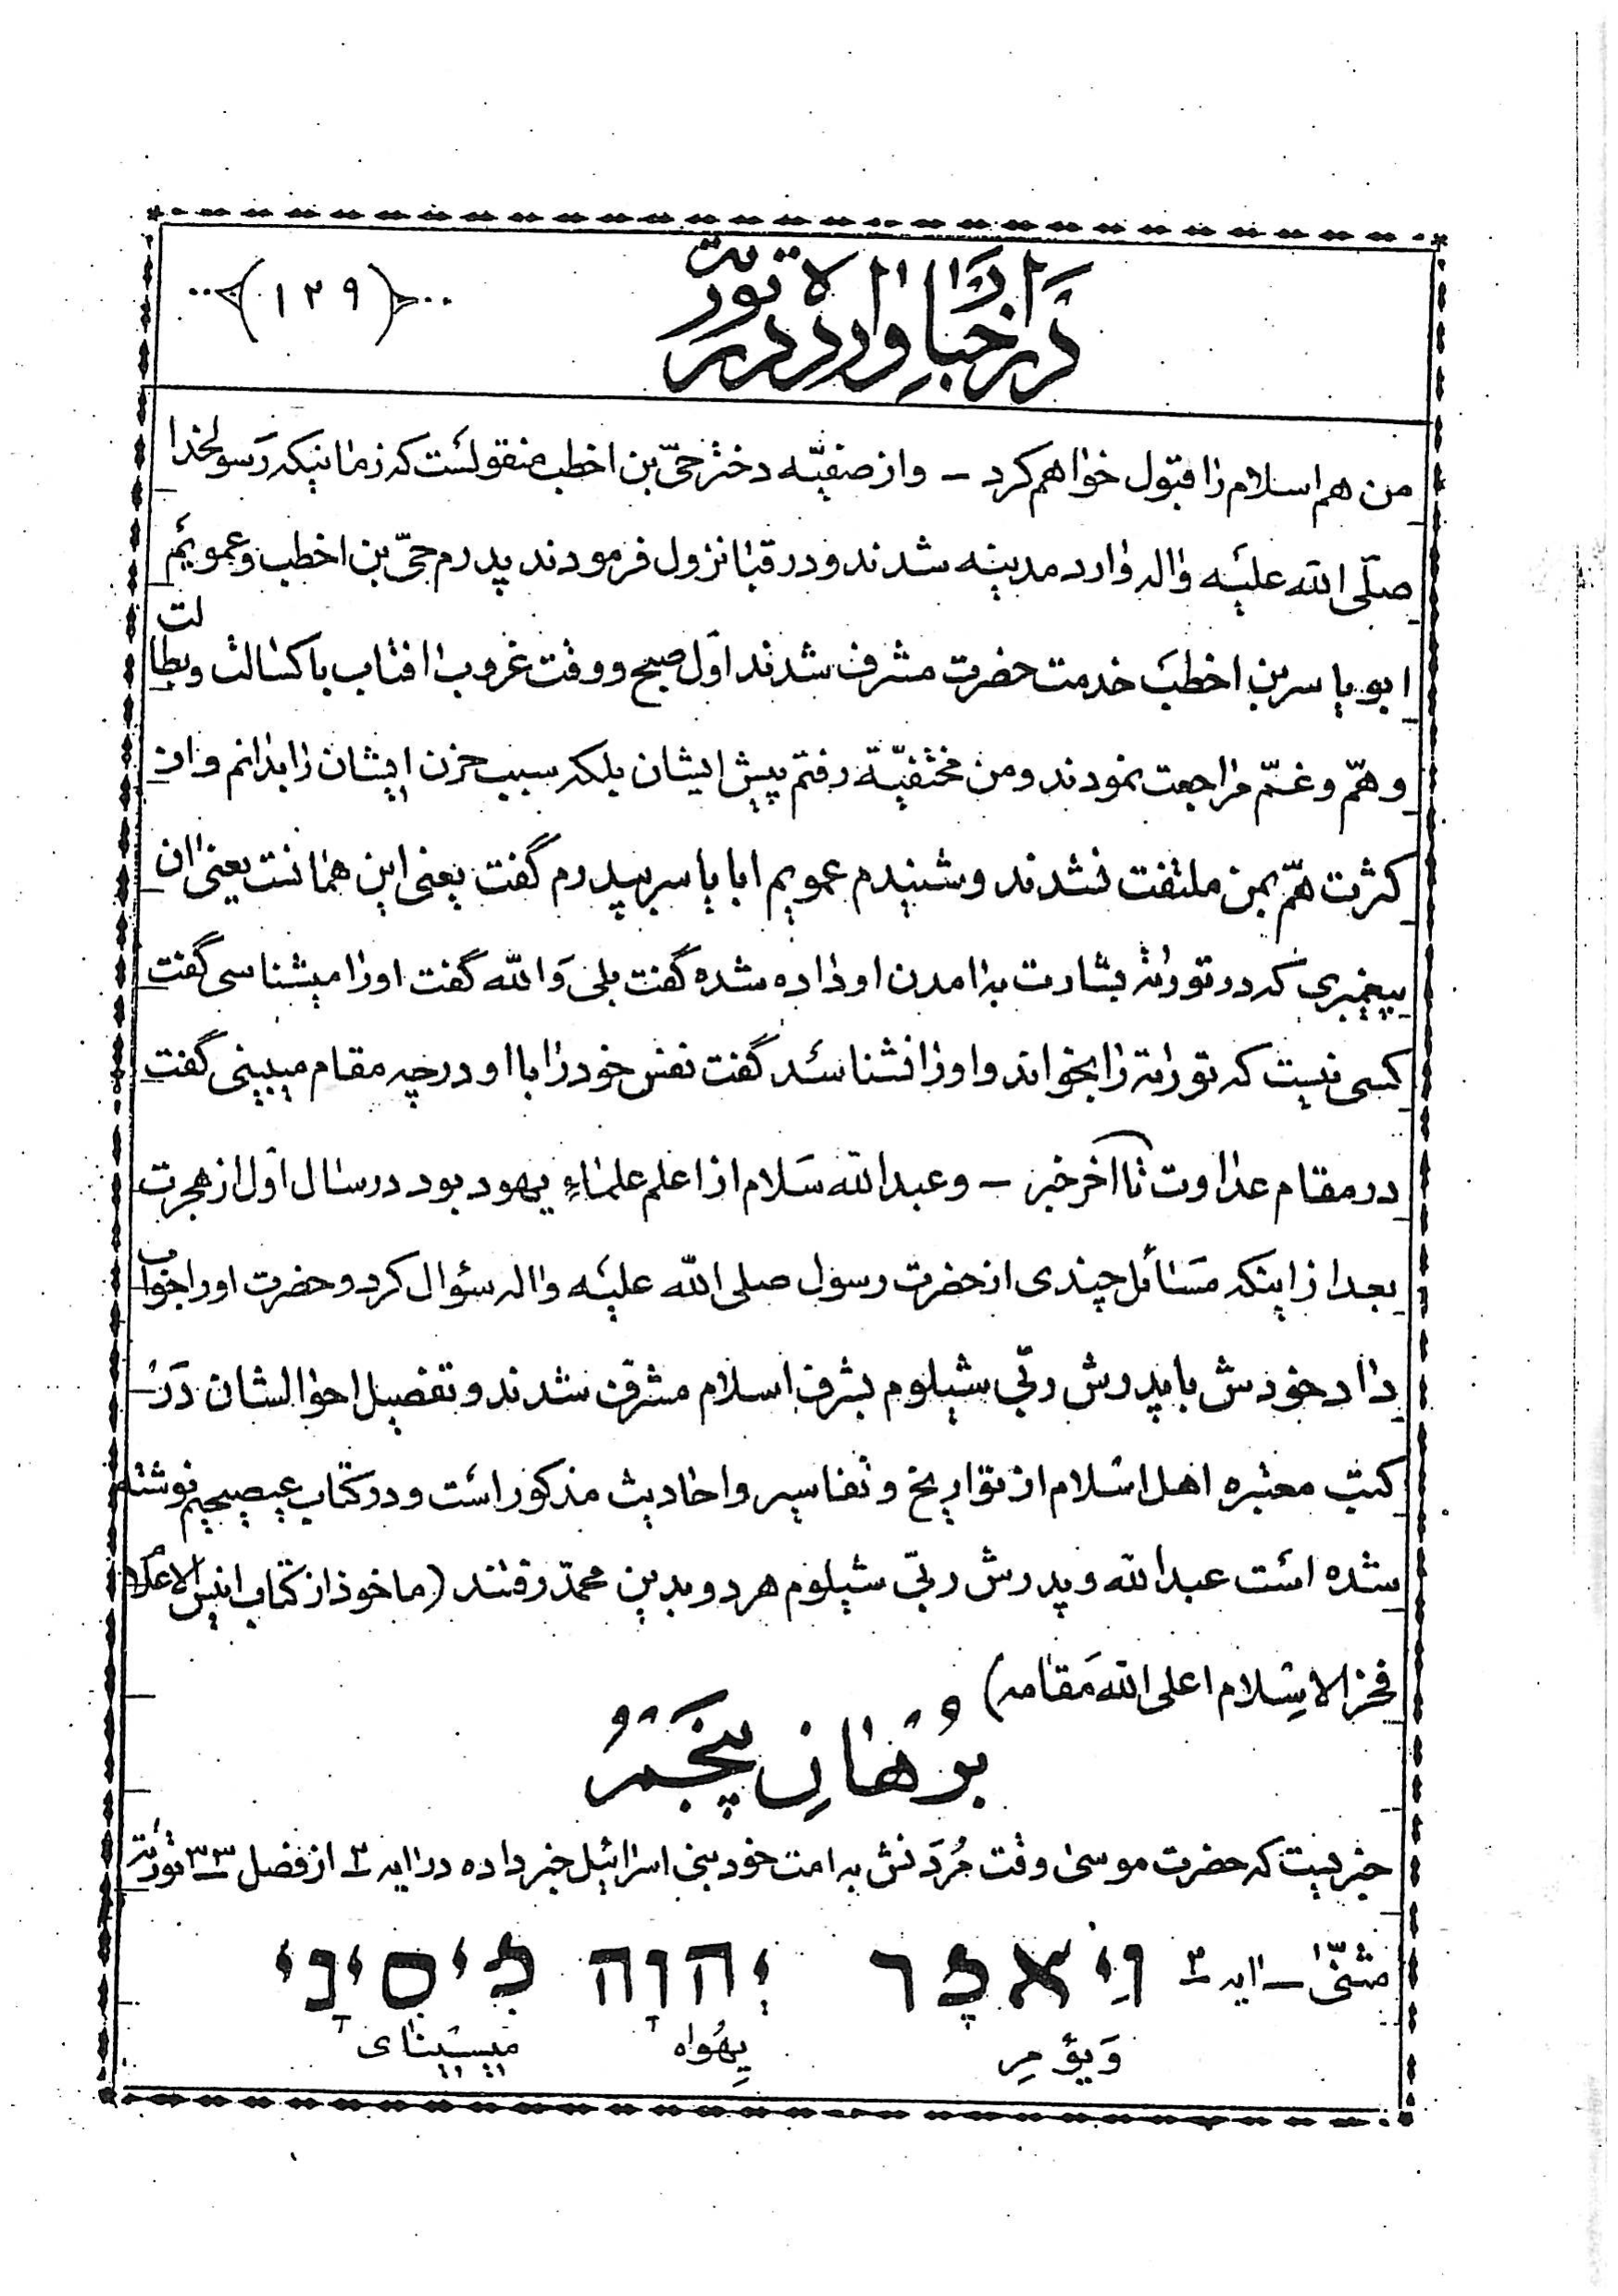 در اخبار وارده در تورية
(١٢٩)
من هم اسلام را قبول خواهم کرد – و از صفیّه دختر حیّ بن اخطب منقولست که زمانیکه رسولخدا
صلّی الله علیه واله وارد مدینه شدند و در قبا نزول فرمودند پدرم حیّ بن اخطب و عمویم
ابو یاسر بن اخطب خدمت حضرت مشرف شدند اوّل صبح و وقت غروب افتاب با کسالت و بطالت
و همّ و غمّ مراجعت نمودند و من مختفیّة رفتم پیش ایشان بلکه سبب حزن ایشان را بدانم و از
کثرت همّ بمن ملتفت نشدند و شنیدم عمویم ابا یاسر بپدرم گفت یعنی این همانست یعنی ان
پیغمبری که در توراة بشارت بد امدن او داده شده گفت بلی والله گفت او را میشناسی گفت
کسی نیست که توراة را بخواند و او را نشناسد گفت نفس خود را با او در چه مقام میبینی گفت
در مقام عداوت تا اخر خبر – و عبدالله سلام از اعلم علماء یهود بود در سال اوّل از هجرت
بعد از اینکه مسائل چندی از حضرت رسول صلی الله علیه واله سؤال کرد و حضرت او را جواب
داد خودش با پدرش ربّی شیلوم بشرف اسلام مشرّف شدند و تفصیل احوالشان در
کتب معتبره اهل اسلام از تواریخ و تفاسیر و احادیث مذکور است و در کتاب عیصیچیم نوشته
شده است عبدالله و پدرش ربّی شیلوم هر دو بدین محمّد رفتند (ماخوذ از کتاب انیس الاعلام
فخر الاسلام اعلی الله مقامه)
بُرهانِ پنجم
خبریست که حضرت موسی وقت مُردنش به امت خود بنی اسرائیل خبر داده در ایه ۲ از فصل ۳۳ توریة
مثنّی – ایه ۲ וַיֹאמַר יְהוָה מִסִינַי
وَیؤمِر یِهُواه میسینای